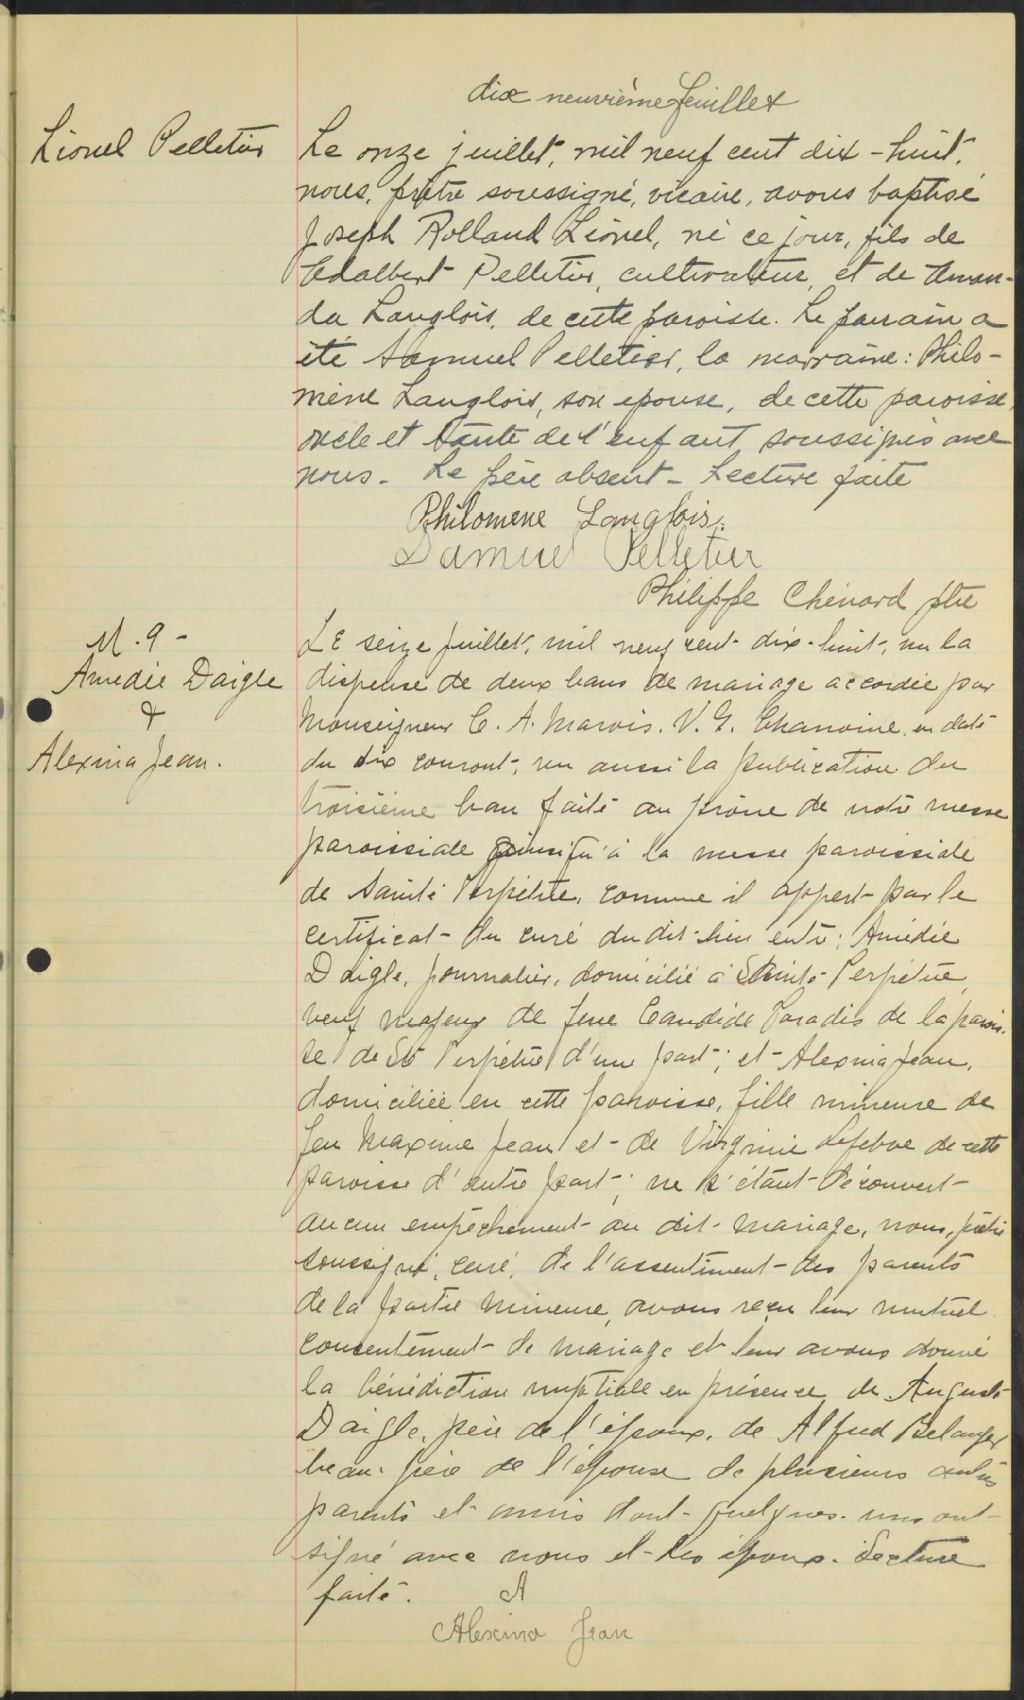 dix neuvième feuillet
Lionel Pelletier
Le onze juillet, mil neuf cent dix-huit,
nous, prêtre soussigné, vicaire, avons baptisé
Joseph Rolland Lionel, né ce jour, fils de
Adalbert Pelletier, cultivateur, et de Aman-
da Langlois, de cette paroisse. Le parrain a
été Samuel Pelletier, la marraine: Philo-
mène Langlois, son épouse, de cette paroisse,
oncle et tante de l'enfant soussignés avec
nous. Le père absent - Lecture faite
Philomene Langlois.
Samuel Pelletier
Philippe Chénard ptre
M. 9 -
Amédée Daigle
&
Alexina Jean.
Le seize juillet, mil neuf cent dix-huit, vu la
dispense de deux bans de mariage accordée par
Monseigneur C. A. Marois, V. G. Chanoine, en date
du dix courant, vu aussi la publication du
troisième ban faite au prône de notre messe
paroissiale ainsi qu'à la messe paroissiale
de Sainte Perpétue, comme il appert par le
certificat du curé du dit lieu entre; Amédée
Daigle, journalier, domicilié à Sainte-Perpétue,
veuf majeur de feue Candide Paradis de la parois-
se de Ste Perpétue d'une part; et Alexina Jean,
domiciliée en cette paroisse, fille mineure de
feu Maxime Jean et de Virginie Lefebvre de cette
paroisse d'autre part; ne s'étant découvert
aucun empêchement au dit mariage, nous, prêtre
soussigné, curé, de l'assentiment des parents
de la partie mineure, avons reçu leur mutuel
consentement de mariage et leur avons donné
la bénédiction nuptiale en présence de Auguste
Daigle, père de l'époux, de Alfred Belanger
beau-père de l'épouse de plusieurs autres
parents et amis dont quelques-uns ont
signé avec nous et les époux. Lecture
faite. A
Alexina Jean